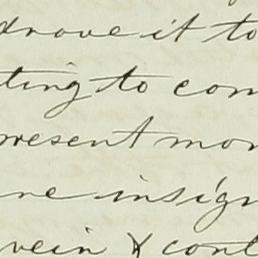 drove it to
ting to com
present mom
ne insign
vein & cont